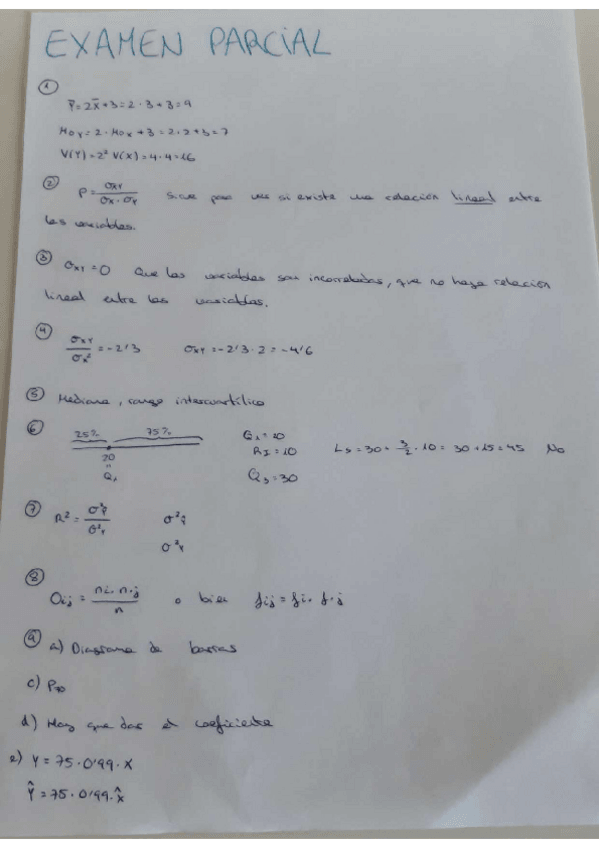 EXAMEN PARCIAL
①
Ȳ = 2X̄ + 3 = 2 · 3 + 3 = 9
Mo Y = 2 · Mo X + 3 = 2 · 2 + 3 = 7
V(Y) = 2² V(X) = 4 · 4 = 16
② ρ = σxy / σx · σy Sirve para ver si existe una relación lineal entre
las variables.
③ σxy = 0 Que las variables son incorreladas, que no haya relación
lineal entre las variables.
④ σxy / σx² = -2'3 σxy = -2'3 · 2 = -4'6
⑤ Mediana, rango intercuartílico
⑥ 25% 75% Q1 = 20
20 RI = 10 Ls = 30 + 3/2 · 10 = 30 + 15 = 45 No
Q1 Q3 = 30
⑦ R² = σ²ŷ / σ²y σ²ŷ
σ²y
⑧ Oij = ni. n.j / n o bien fij = fi. f.j
⑨ a) Diagrama de barras
c) P70
d) Hay que dar el coeficiente
e) Y = 75 · 0'99 · X
Ŷ = 75 · 0'99 · X̂